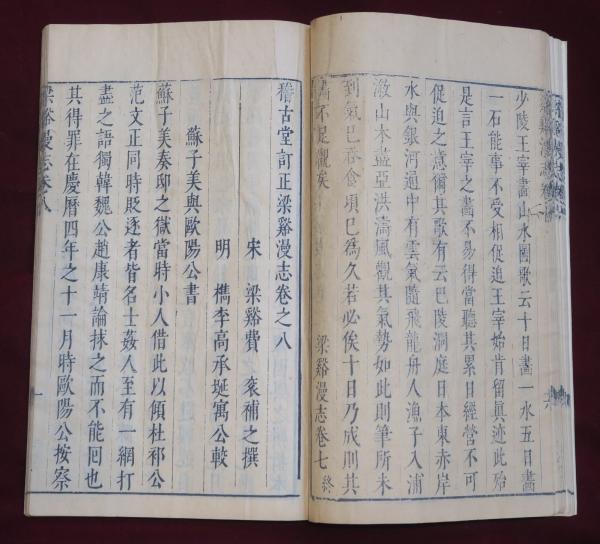 少陵王宰畫山水圖歌云十日畫一水五日畫
一石能事不受相促迫王宰始肯留眞迹此殆
是言王宰之畫不易得當聽其累日經營不可
促迫之意爾其歌有云巴陵洞庭日本東赤岸
水與銀河通中有雲氣隨飛龍舟人漁子入浦
漵山木盡亞洪濤風觀其氣勢如此則筆所未
到氣已吞食頃已爲久若必俟十日乃成則其
不足觀矣
梁谿漫志卷七 終
稽古堂訂正梁谿漫志卷之八
宋 梁谿費 袞補之撰
明 檇李高承埏寓公較
蘇子美與歐陽公書
蘇子美奏邸之獄當時小人借此以傾杜祁公
范文正同時貶逐者皆名士姦人至有一網打
盡之語獨韓魏公趙康靖論捄之而不能囘也
其得罪在慶曆四年之十一月時歐陽公按察
梁谿漫志卷八